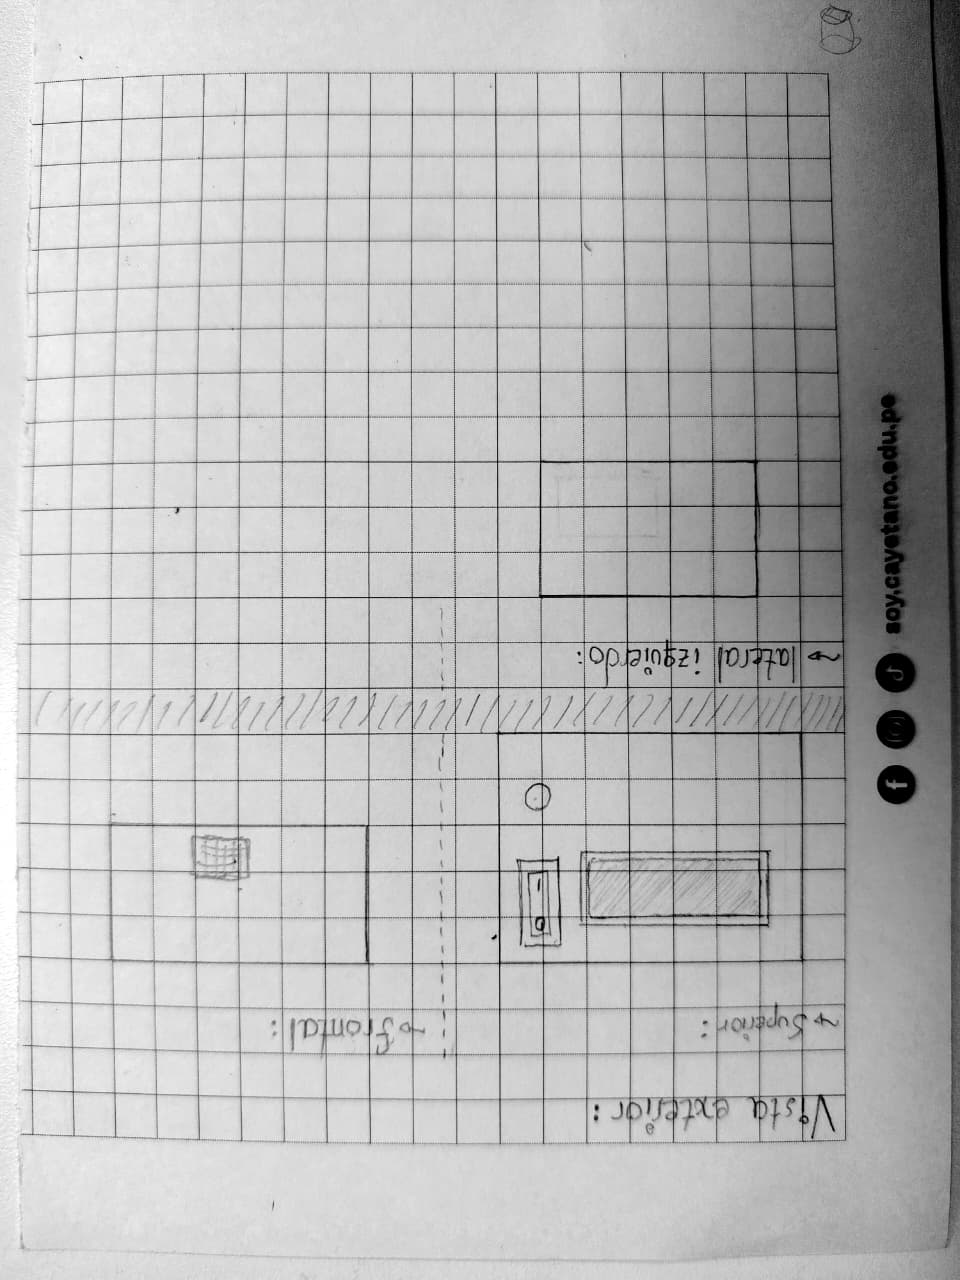 Vista exterior:
→ Superior:
→ frontal:
0 1
→ lateral izquierdo:
soy.cayetano.edu.pe